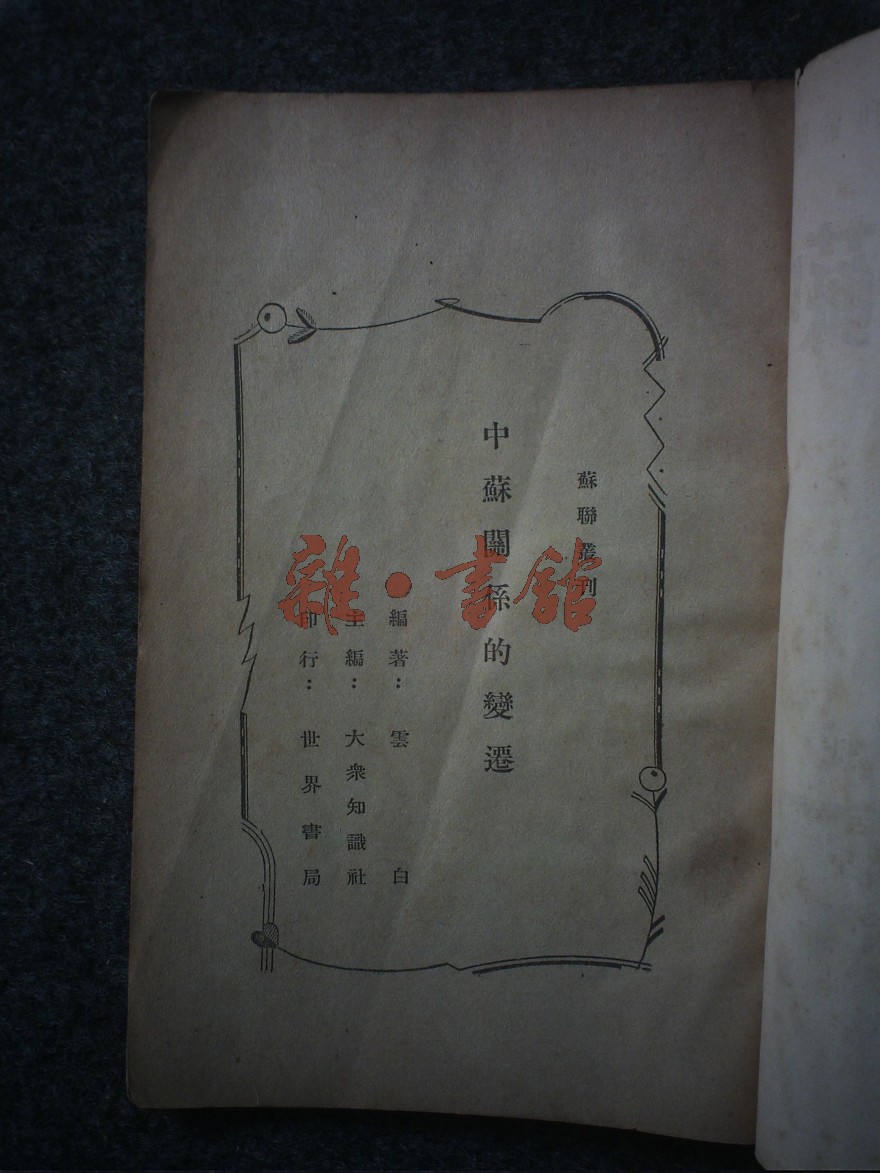 蘇聯叢刊
中蘇關係的變遷
編著：雲白
主編：大衆知識社
印行：世界書局
雜·書館